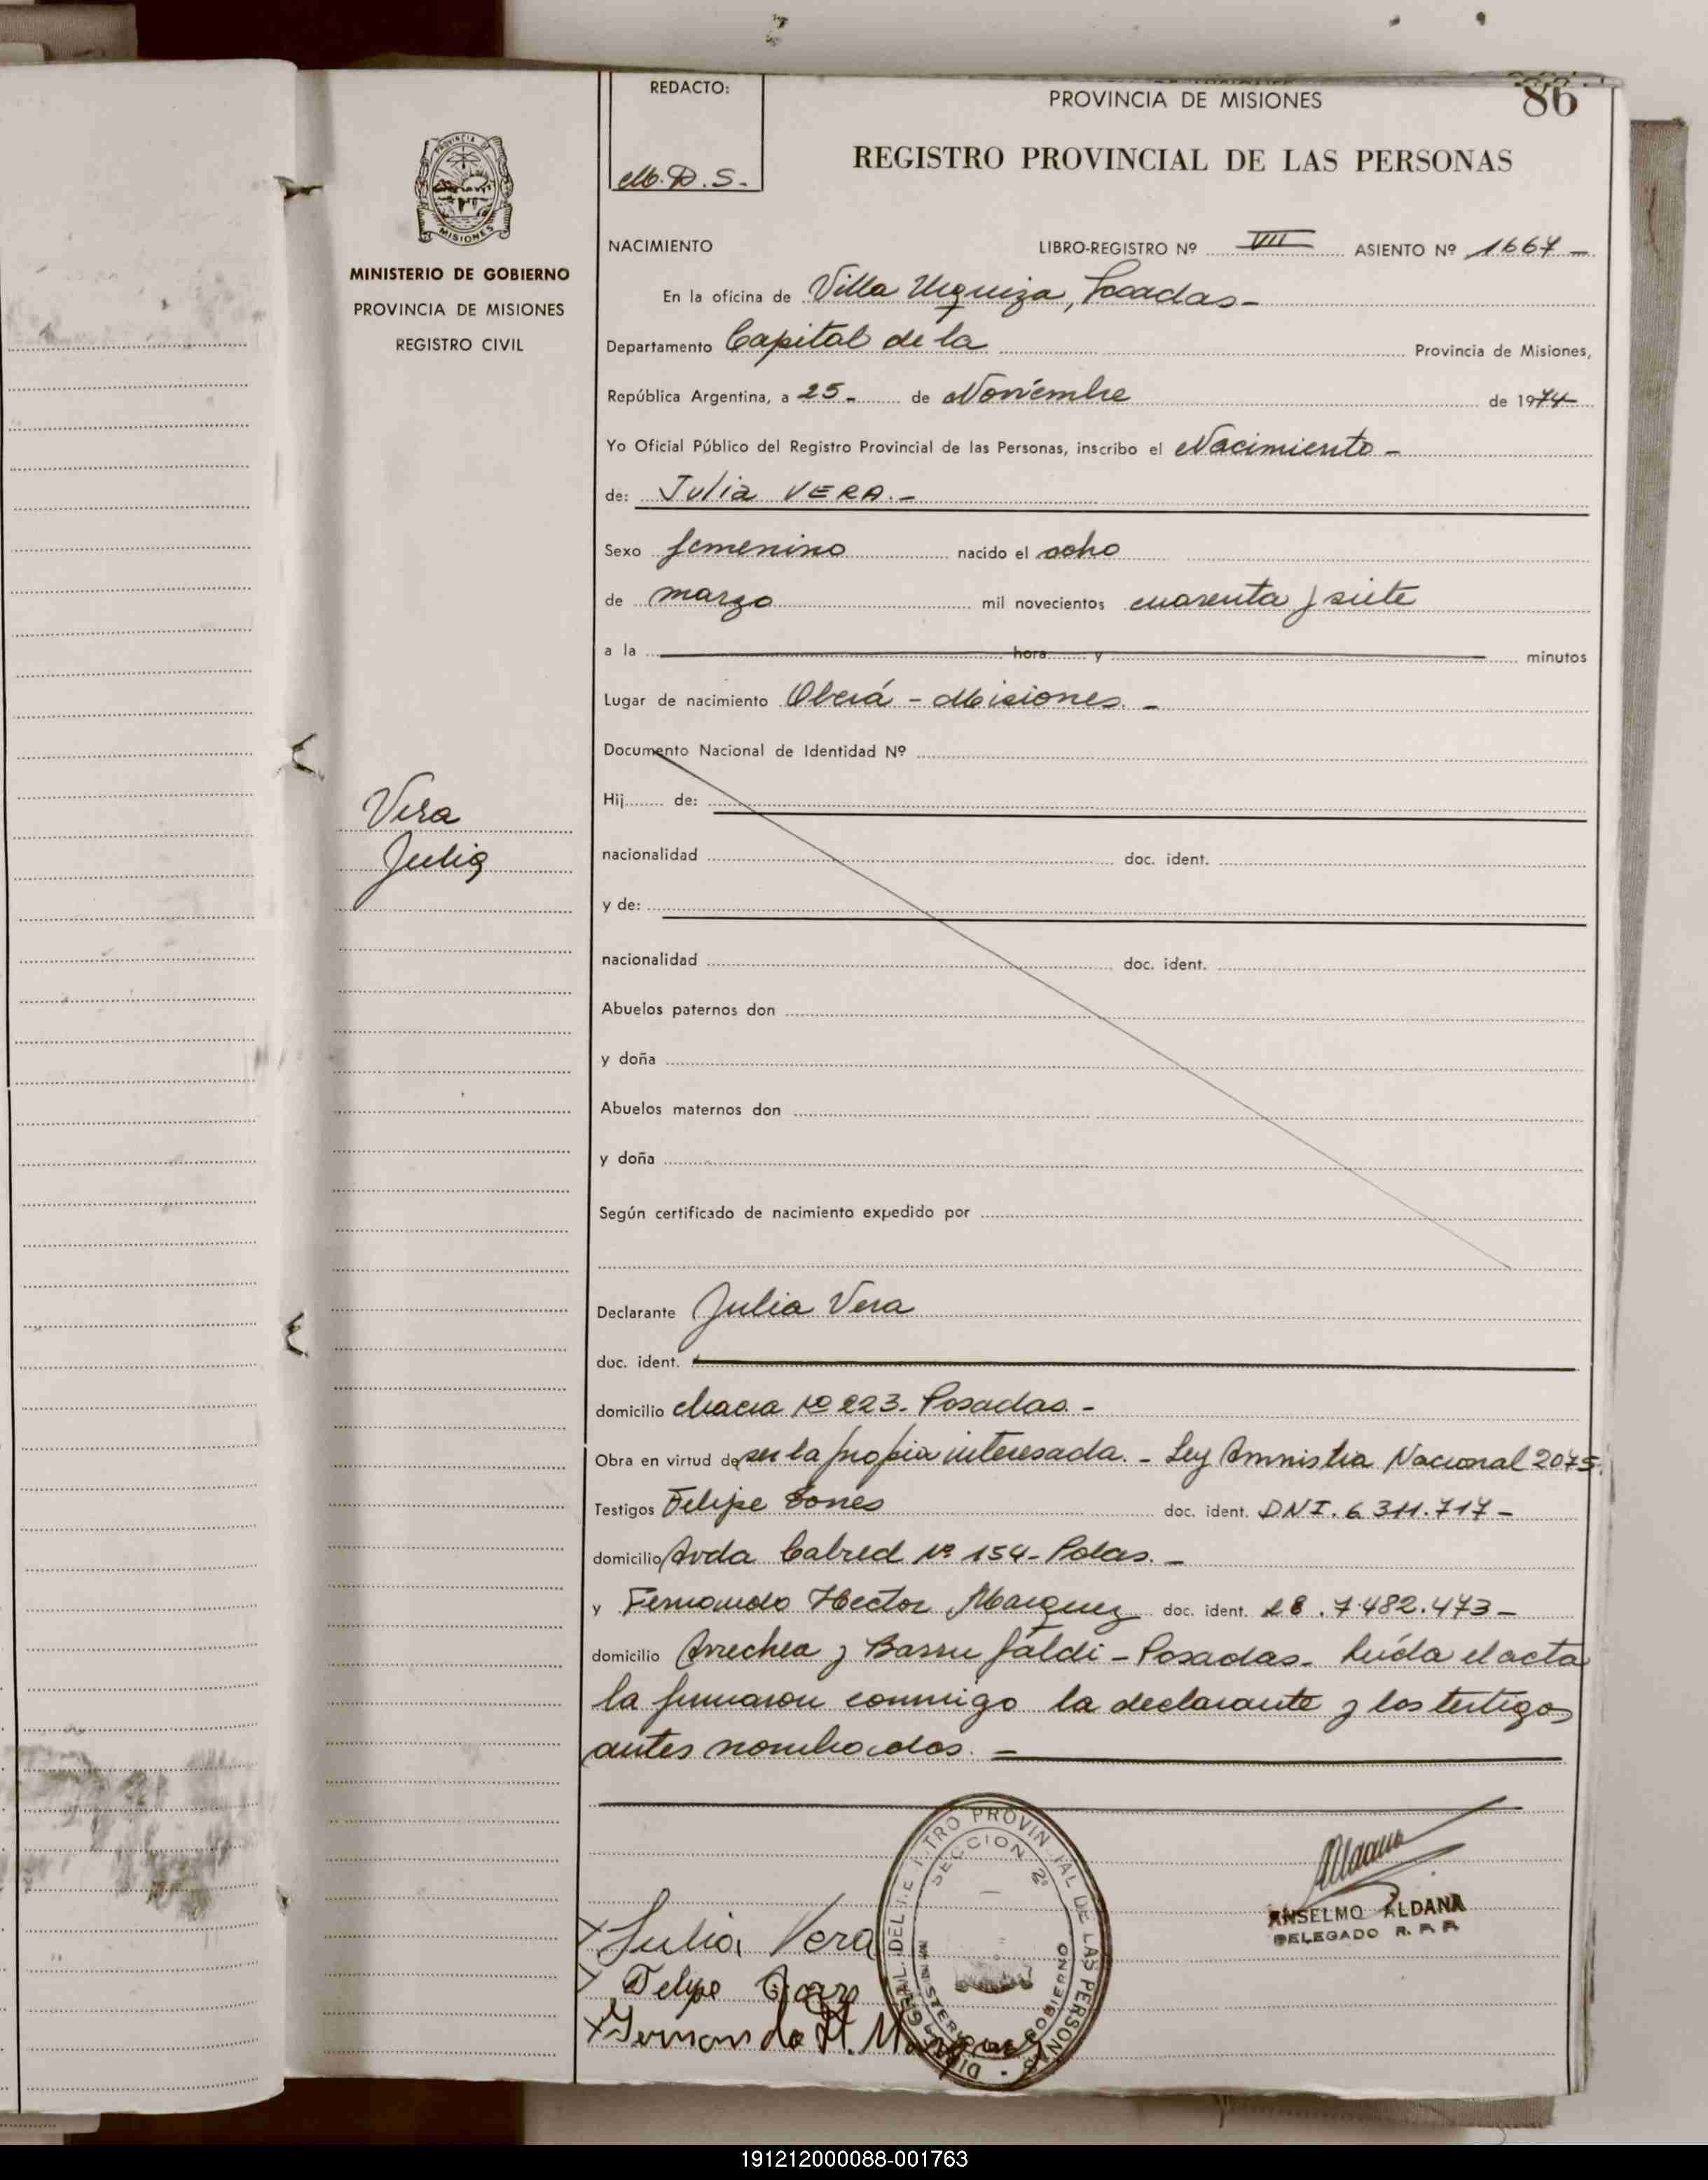 REDACTO:
M.D.S.-
PROVINCIA DE MISIONES
86
REGISTRO PROVINCIAL DE LAS PERSONAS
PROVINCIA DE
MISIONES
MINISTERIO DE GOBIERNO
PROVINCIA DE MISIONES
REGISTRO CIVIL
Vera
Julia
NACIMIENTO LIBRO-REGISTRO Nº VIII ASIENTO Nº 1667 -
En la oficina de Villa Urquiza, Posadas-
Departamento Capital de la Provincia de Misiones,
República Argentina, a 25- de Noviembre de 1974-
Yo Oficial Público del Registro Provincial de las Personas, inscribo el Nacimiento -
de: Julia VERA.-
Sexo femenino nacido el ocho
de marzo mil novecientos cuarenta y siete
a la hora y minutos
Lugar de nacimiento Oberá - Misiones. -
Documento Nacional de Identidad Nº
Hij de:
nacionalidad doc. ident.
y de:
nacionalidad doc. ident.
Abuelos paternos don
y doña
Abuelos maternos don
y doña
Según certificado de nacimiento expedido por
Declarante Julia Vera
doc. ident.
domicilio chacra Nº 223. Posadas. -
Obra en virtud de ser la propia interesada. - Ley Amnistia Nacional 2075.
Testigos Felipe doc. ident. DNI. 6.311.717-
domicilio Avda Cabred Nº 154- Pdas. -
y Fernando Hector Marquez doc. ident. 7.482.473-
domicilio Arrechea y Barrufaldi - Posadas- Leída el acta
la firmaron conmigo la declarante y los testigos
antes nombrados. -
REGISTRO PROVINCIAL DE LAS PERSONAS
SECCION 2ª
MINISTERIO GOBIERNO
ANSELMO ALDANA
DELEGADO R. P. P.
Julia Vera
Felipe
Fernando H. Marquez
191212000088-001763